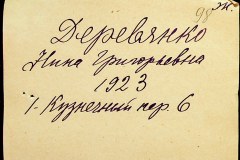 98 ж.
Деревянко
Нина Григорьевна
1923
1-Кузнечный пер. 6